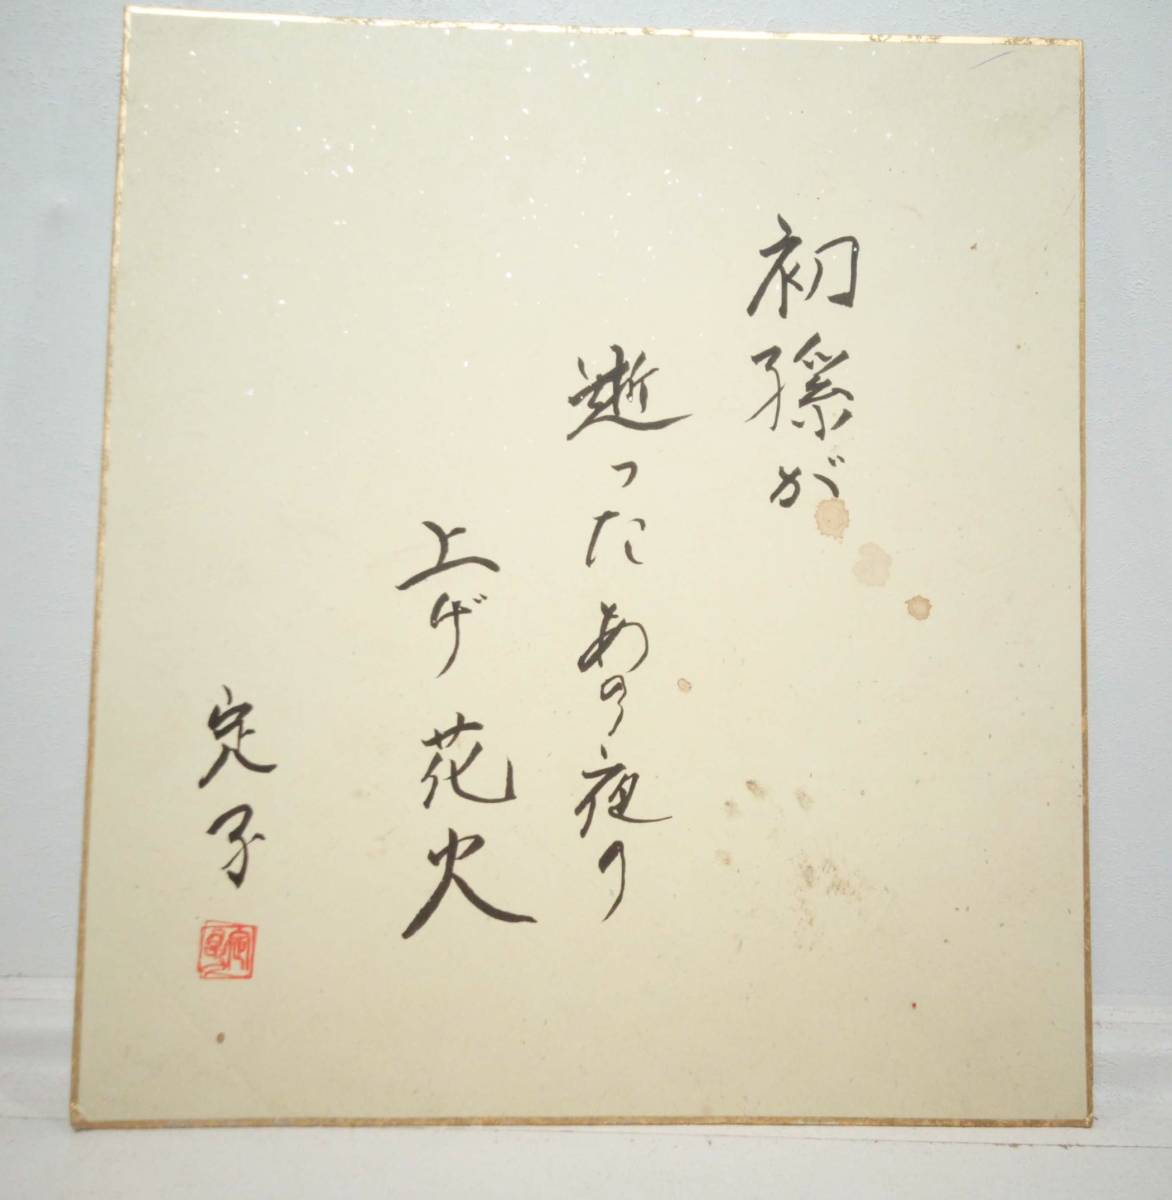 初孫が
逝ったあの夜の
上げ花火
定子